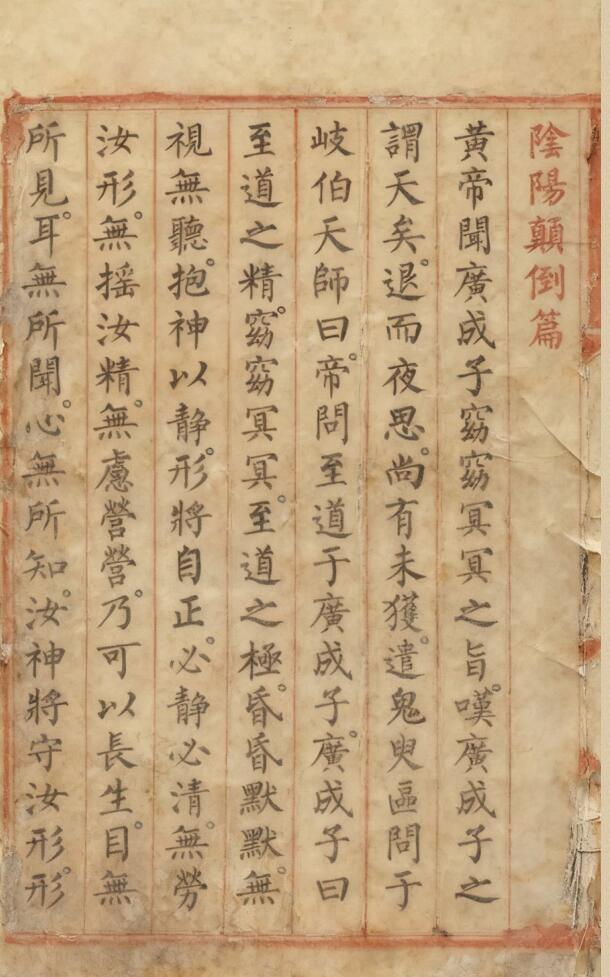 陰陽顛倒篇
黃帝聞廣成子窈窈冥冥之旨。嘆廣成子之
謂天矣。退而夜思。尚有未獲。遣鬼臾區問于
岐伯天師曰。帝問至道于廣成子。廣成子曰
至道之精。窈窈冥冥。至道之極。昏昏默默。無
視無聽。抱神以静。形將自正。必静必清。無勞
汝形。無摇汝精。無慮營營。乃可以長生。目無
所見。耳無所聞。心無所知。汝神將守汝形。形